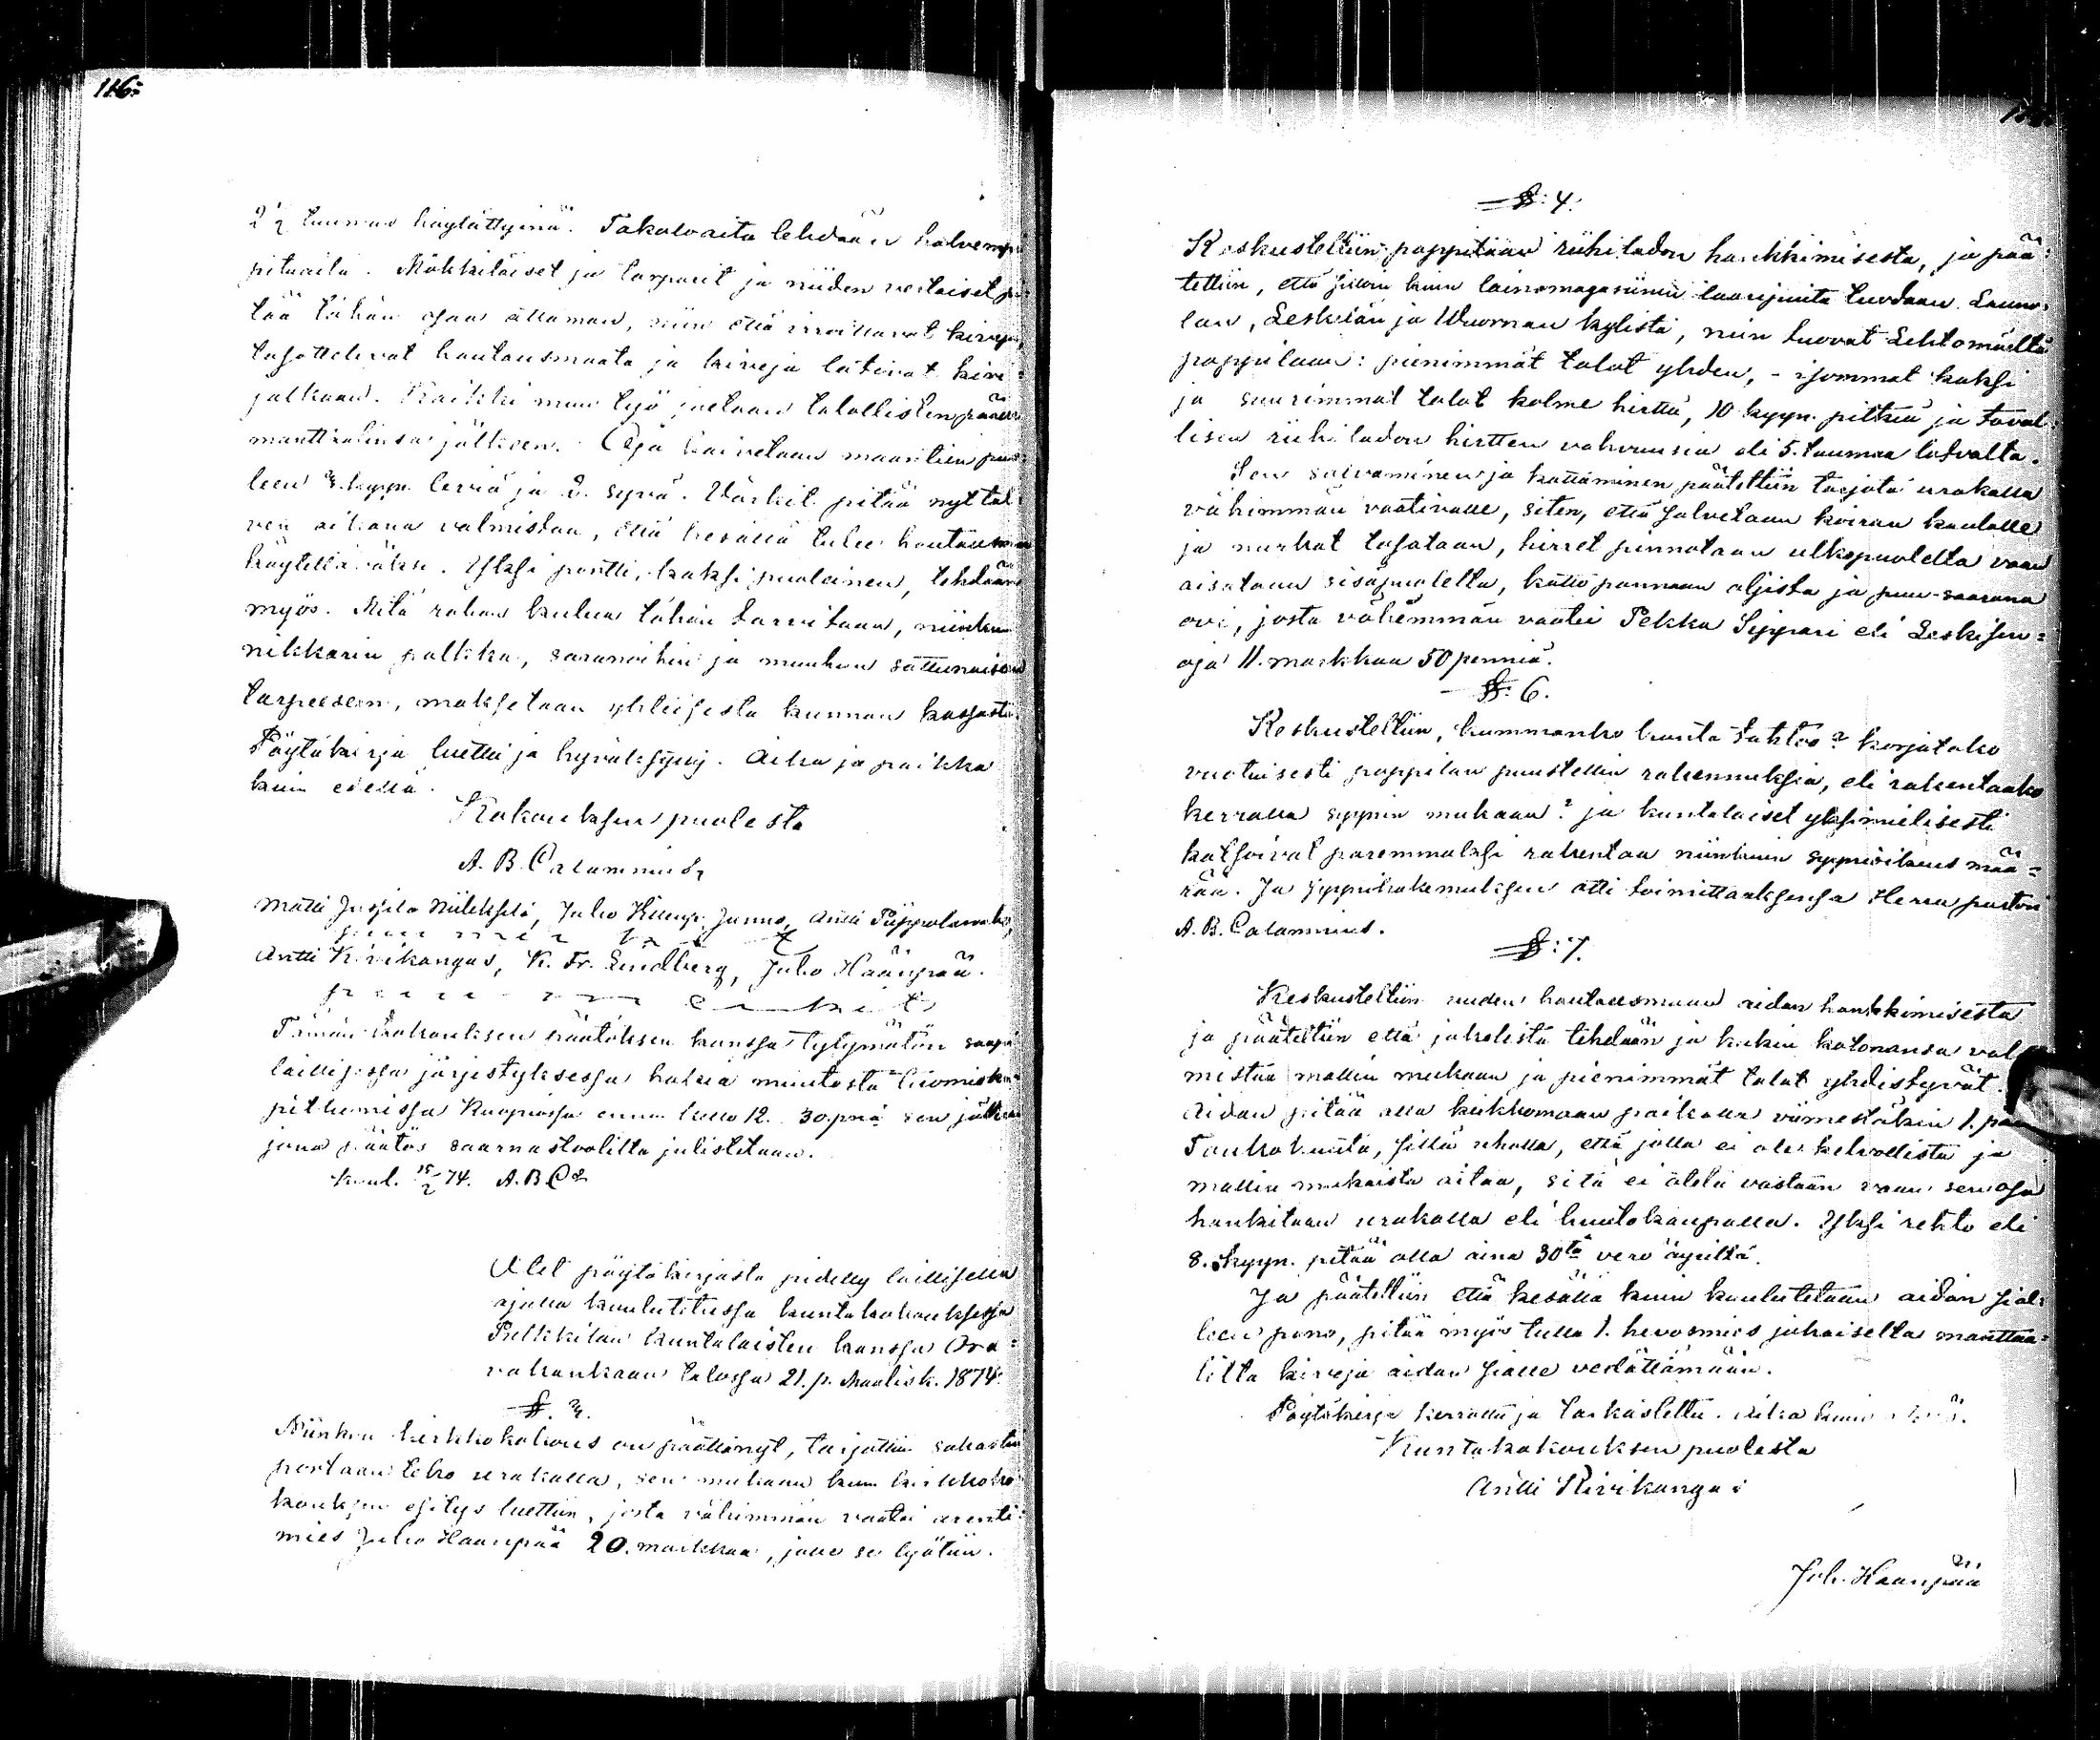 116:
2 1/2 tuumaa höylättyinä. Takalvaita tehdään halvempi
pituaita. Mökkiläiset ja torparit ja niiden vertaiset pi:
tää tähän osaa ottaman, niin että irroittavat kiveja,
tasottelevat hautausmaata ja kiveja latovat kivi:
jalkaan. Kaikki muu työ jaetaan talollisten päälle
manttaalinsa jälkeen. Oja kaivetaan maantien puo:
leen 3. kyyn. leviä ja 2. syvä. Värkit pitää nyt tal
ven aikana valmistaa, että kesällä tulee hautausmaa
käytettäväksi. Yksi portti, kaksi puoleinen, tehdään
myös. Mitä rahaa kuluu tähän tarvitaan, niinkun
nikkarin palkka, saranoihin ja muuhun sattunaiseen
tarpeeseen, maksetaan yhteisesta kunnan kassasta.
Pöytäkirja luettu ja hyväksytty. Aika ja paikka
kuin edellä.
Kokouksen puolesta
A. B. Calamnius
Matti Jussila Niilekselä, Juho Junno, Antti Piippolamäki,
Antti Kivikangas, K. Fr. Lindberg, Juho Haanpää.
Tämän kokouksen päätöksen kanssa tytymätön saapi
laillisessa järjestyksessa hakea muutosta
Kuopiossa ennen kello 12. 30. pnä sen jälkeen
jona päätös saarnastoolilta julistetaan.
Kuul. 15/2 74. A. B. Cs
Ulet pöytäkirjasta pidetty laillisella
ajalla kuulutetussa kuntakokouksessa
Pulkkilan kuntalaisten kanssa Ora:
vakankaan talossa 21. p. Maalisk. 1874.
§. 3.
Niinkun kirkkokokous on päättänyt, tarjottiin sakastin
portaan teko urakalla, sen mukaan kuin kirkkoko
kouksen esitys luettiin, josta vähimmän vaatei arenti:
mies Juho Haanpää 20. markkaa, jolle se lyötiin.
§: 4.
Keskusteltiin pappilaan riihiladon hankkimisesta, ja pää:
tettiin, että silloin kuin lainamagasiinin laaripuita tuodaan. Launo:
lan, Leskelän ja Wuornan kylistä, niin tuovat Lehtomäeltä
pappilaan: pienimmät talot yhden, - isommat kaksi
ja suurimmat talot kolme hirttä, 10 kyyn. pitkiä ja taval:
lisen riihiladon hirtten vahvuusia eli 5. tuumaa latvalta.
Sen salvaminen ja kattaminen päätettiin tarjota urakalla
vähimmän vaativalle, siten, että salvetaan koiran kaulalle
ja nurkat tasataan, hirret pinnataan ulkopuolelta vaan
aisataan sisäpuolelta, katto pannaan oljista ja puu-saarana
ovi, josta vähemmän vaatei Pekka Sippari eli Leskisen=
oja 11. markkaa 50 penniä.
§: 6.
Keskusteltiin, kummanko kunta tahtoo? korjatako
vuotuisesti pappilan puustellin rakennuksia, eli rakentaako
kerralla syynin mukaan? ja kuntalaiset yksimielisesti
katsoivat paremmaksi rakentaa niinkuin syynioikeus mää=
rää. Ja syynihakemuksen otti toimittaaksensa Herra pastori
A. B. Calamnius.
§: 7.
Keskusteltiin uuden hautausmaan aidan hankkimisesta
ja päätettiin että jakolista tehdään ja kukin kotonansa val
mistaa mallin mukaan ja pienimmät talot yhdistyvät.
Aidan pitää olla kirkkomaan paikalla viimestäkin 1. pää
Toukokuuta, sillä uhalla, että jolla ei ole kelvollista ja
mallin mukaista aitaa, sitä ei oteta vastaan vaan sen osa
hankitaan urakalla eli huutokaupalla. Yksi rehto eli
8. kyyn. pitää olla aina 30tä vero äyriltä.
Ja päätettiin että kesällä kuin kuulutetaan aidan sial:
leen pano, pitää myös tulla 1. hevosmies jokaiselta manttaa=
lilta kiveja aidan sialle vedättämään.
Pöytäkirja kerrottu ja tarkastettu. Aika kuin
Kuntakokouksen puolesta
Antti Kivikangas
Joh. Haanpää